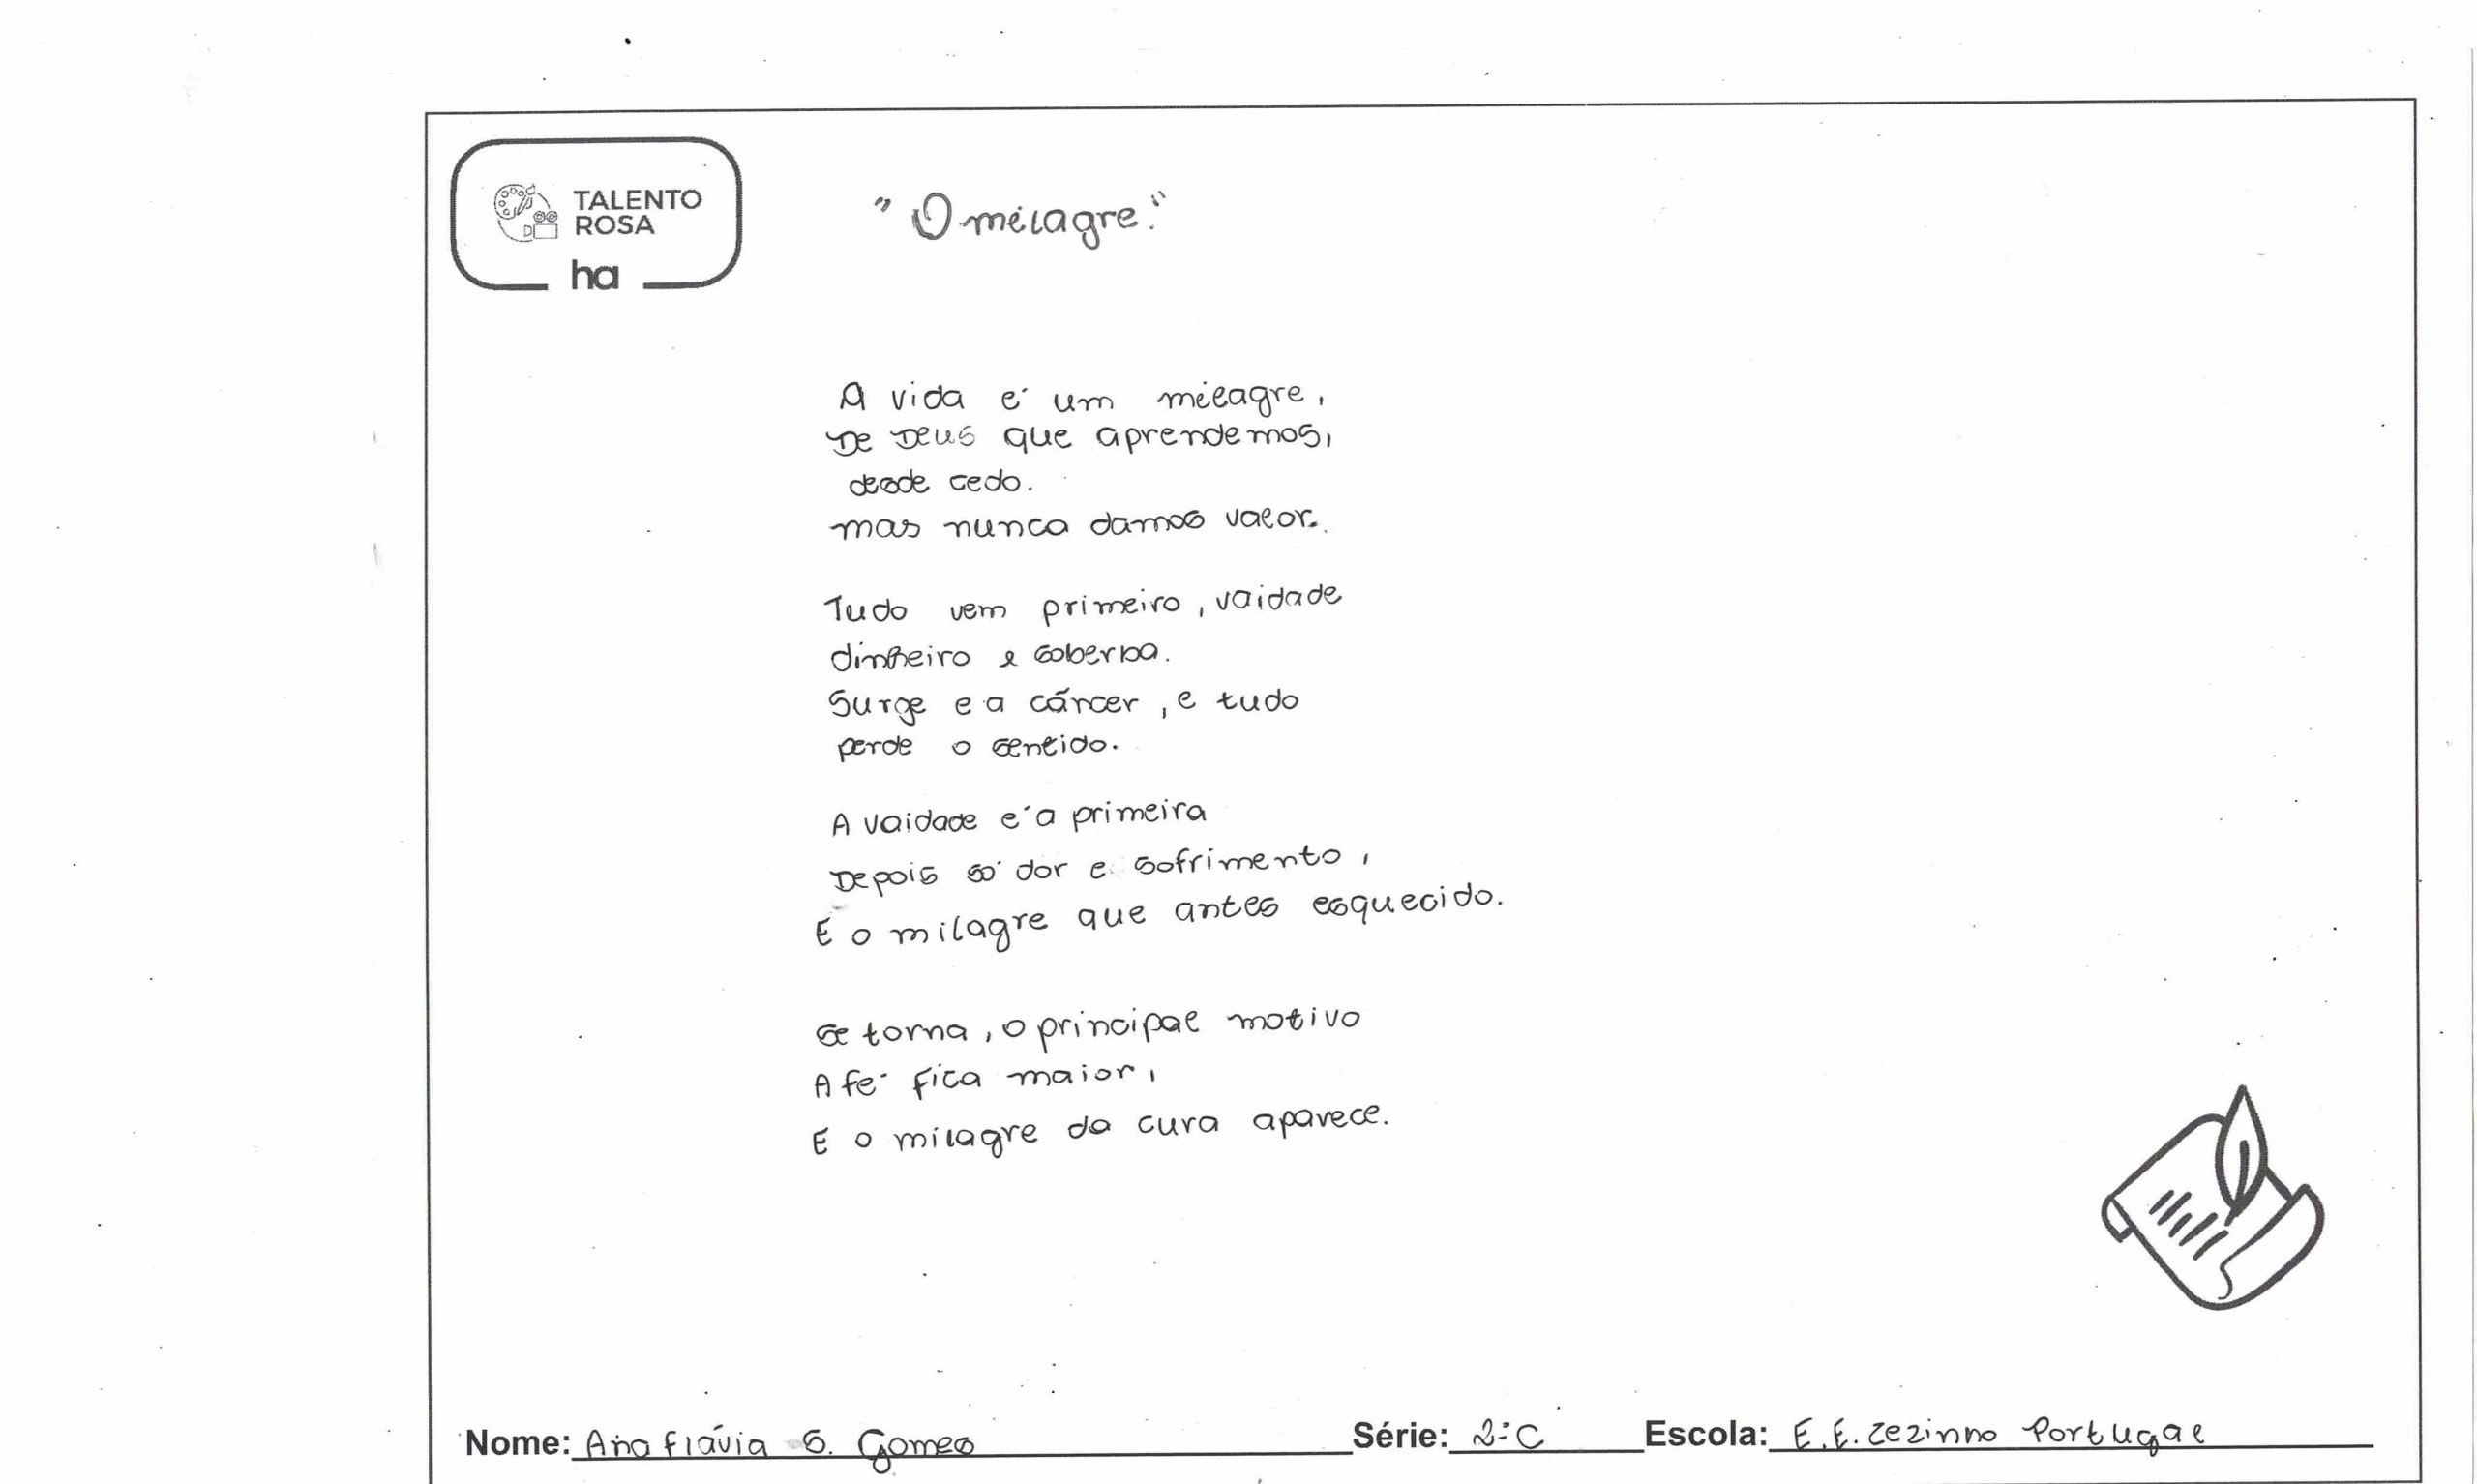 TALENTO
ROSA
ha
"O milagre."
A vida é um milagre,
De Deus que aprendemos,
desde cedo.
mas nunca damos valor.
Tudo vem primeiro, vaidade
dinheiro e soberba.
Surge e a câncer, e tudo
perde o sentido.
A vaidade é a primeira
Depois só dor e sofrimento,
E o milagre que antes esquecido.
Se torna, o principal motivo
A fé fica maior,
E o milagre da cura aparece.
Nome: Ana flávia S. Gomes Série: 2ºC Escola: E.E. Zezinho Portugal